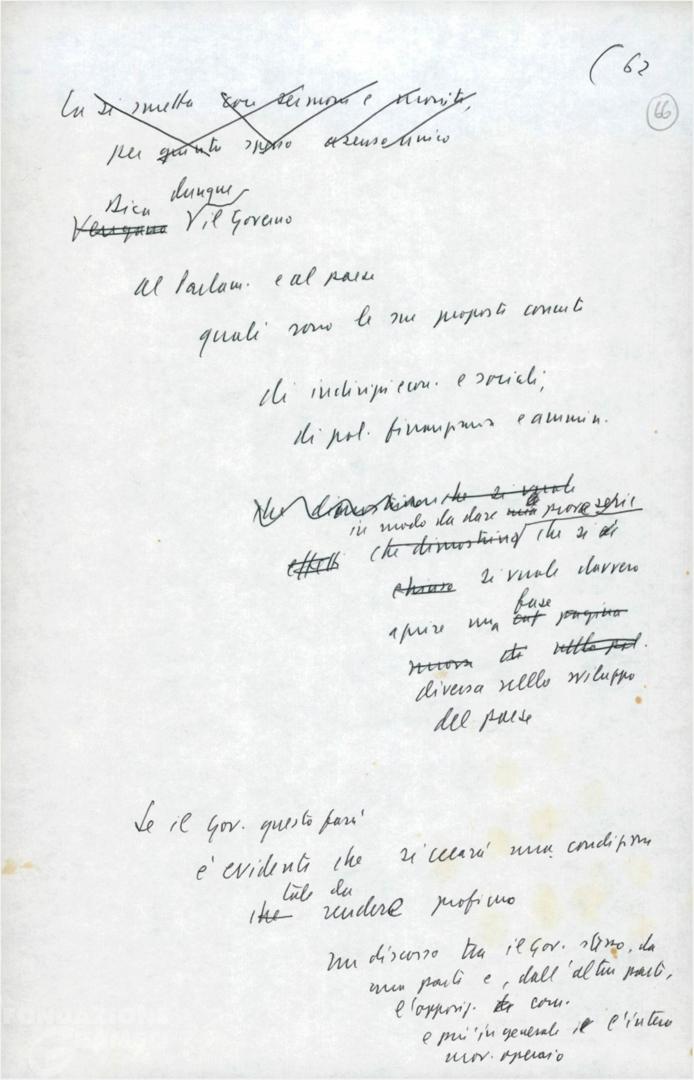 ( 62
66
La si smetta con sermoni e moniti,
per quanto spesso a senso unico
Dica dunque
Vengano il Governo
al Parlam. e al paese
quali sono le sue proposte concrete
di indirizzi econ. e sociali,
di pol. finanziaria e ammin.
che dimostrino che si vuole
in modo da dare una prova seria
effetti che dimostrino che si è
chiaro si vuole davvero
fase
aprire una pagina
nuova della pol.
diversa nello sviluppo
del paese
Se il Gov. questo farà
è evidente che si creerà una condizione
tale da
che rendere proficuo
un discorso tra il Gov. stesso, da
una parte e, dall'altra parte,
l'opposiz. com.
e più in generale l'intero
mov. operaio
FONDAZIONE